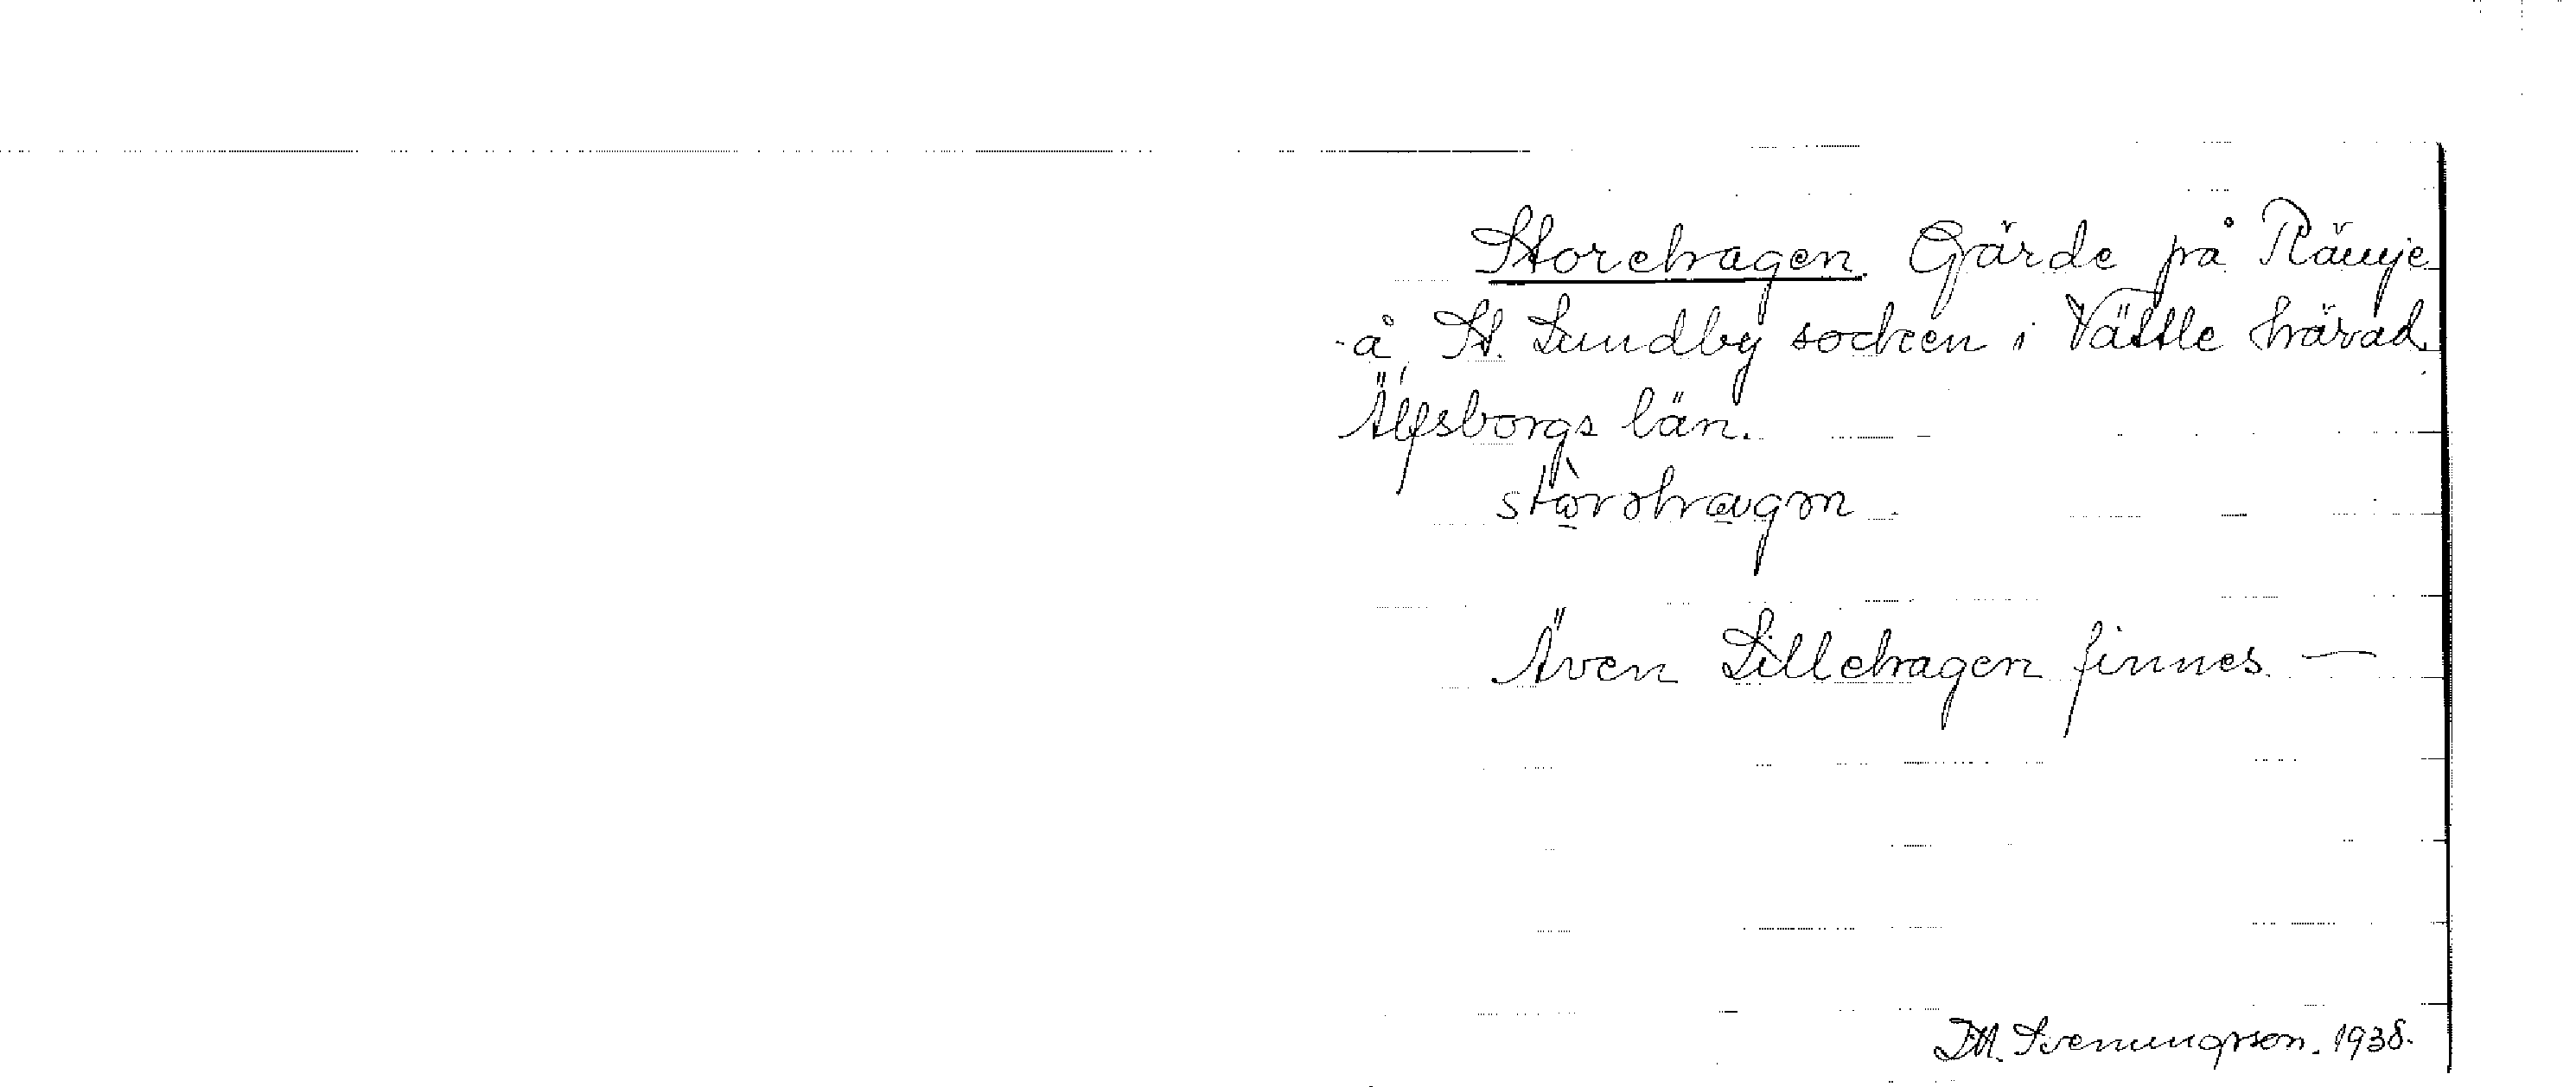 Storehagen. Gärde på Rämje
å St. Lundby socken i Vättle härad.
Älfsborgs län.
Även Lillehagen finnes. —
Svenungsson. 1938.